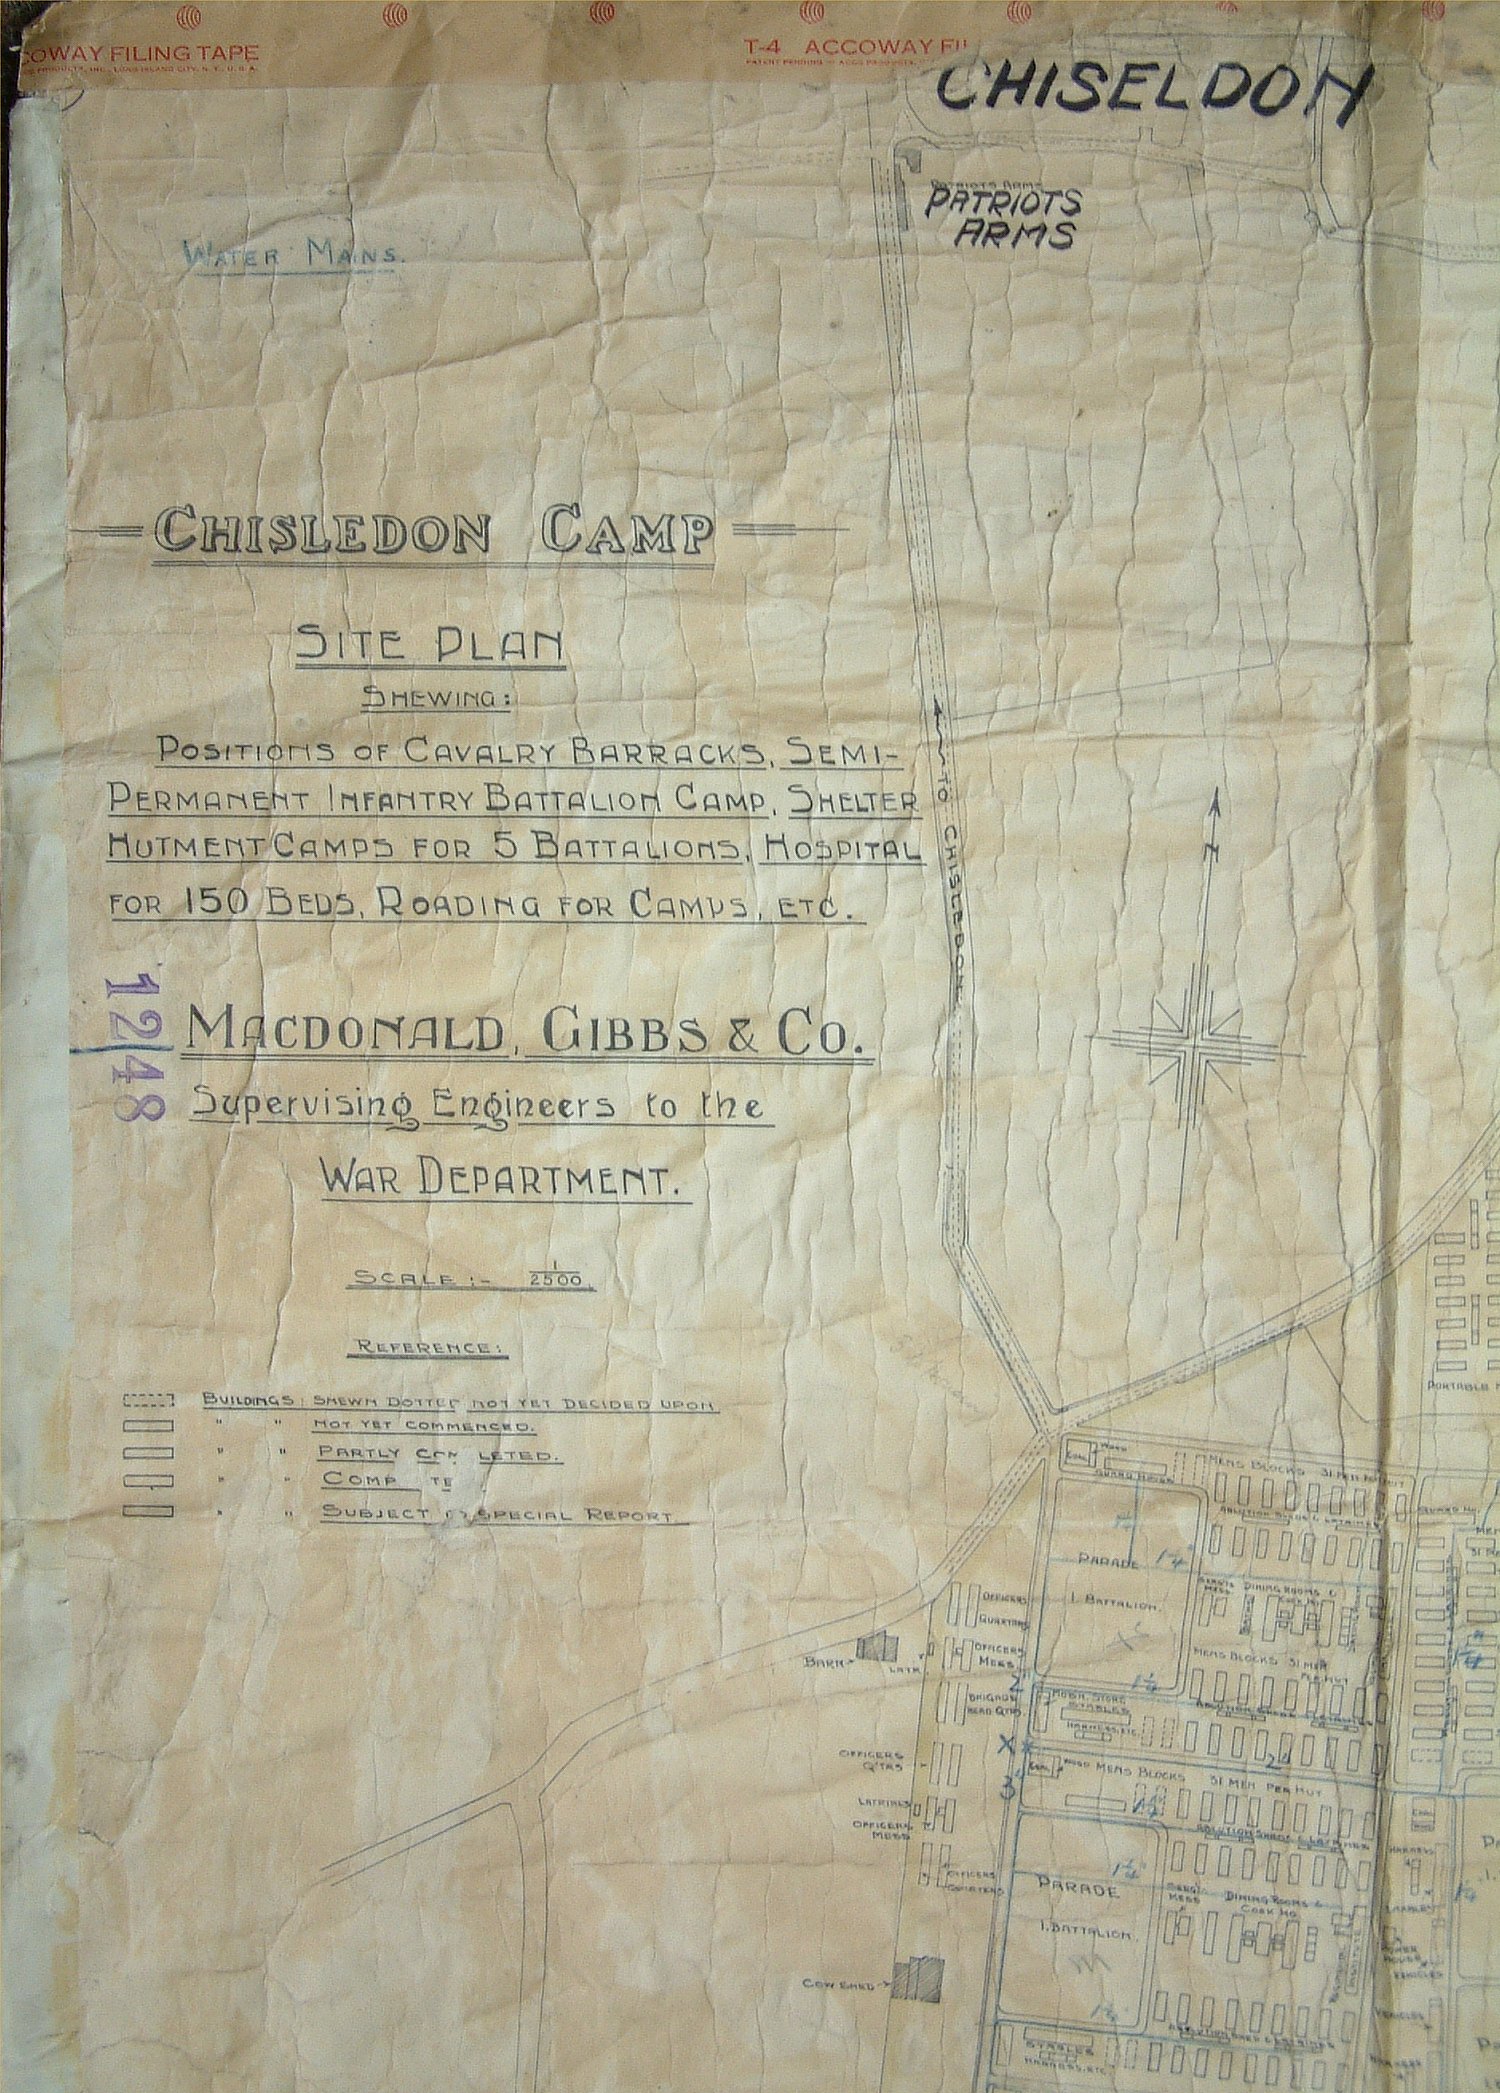 COWAY FILING TAPE
T-4 ACCOWAY FI
CHISELDON
PATRIOTS ARMS
PATRIOTS
ARMS
WATER MAINS.
CHISLEDON CAMP
SITE PLAN
SHEWING:
POSITIONS OF CAVALRY BARRACKS, SEMI-
PERMANENT INFANTRY BATTALION CAMP, SHELTER
HUTMENT CAMPS FOR 5 BATTALIONS, HOSPITAL
FOR 150 BEDS, ROADING FOR CAMPS, ETC.
TO CHISLEDON.
N
12/48
MACDONALD, GIBBS & CO.
Supervising Engineers to the
WAR DEPARTMENT.
SCALE :- 1/2500
REFERENCE:
BUILDINGS SHEWN DOTTED NOT YET DECIDED UPON
" " NOT YET COMMENCED.
" " PARTLY COM LETED.
" " COMP TE
" " SUBJECT SPECIAL REPORT
PORTABLE
COAL WOOD
GUARD HOUSE
MENS BLOCKS 31 MEN PER HUT
ABLUTION SHEDS & LATRINES
GUARD HO.
PARADE 1¼"
1. BATTALION.
SERGTS MESS
DINING ROOMS &
COOK HO.
OFFICERS
QUARTERS
OFFICERS
MESS
BARN
LATR.
MENS BLOCKS 31 MEN
PER HUT
1¼"
2"
BRIGADE
HEAD QTRS
MOBN. STORE
STABLES
HARNESS, ETC.
X
3"
OFFICERS
QTRS
COAL WOOD MENS BLOCKS 31 MEN PER HUT
2"
LATRINES
OFFICERS
MESS
ABLUTION SHEDS & LATRINES
HARNESS
OFFICERS
QUARTERS
PARADE
1¼"
SERGTS
MESS
DINING ROOMS &
COOK HO.
1. BATTALION.
POWER
HOUSE
VEHICLES
COW SHED
VEHICLES
STABLES
HARNESS, ETC.
ABLUTION SHED & LATRINES
HARNESS